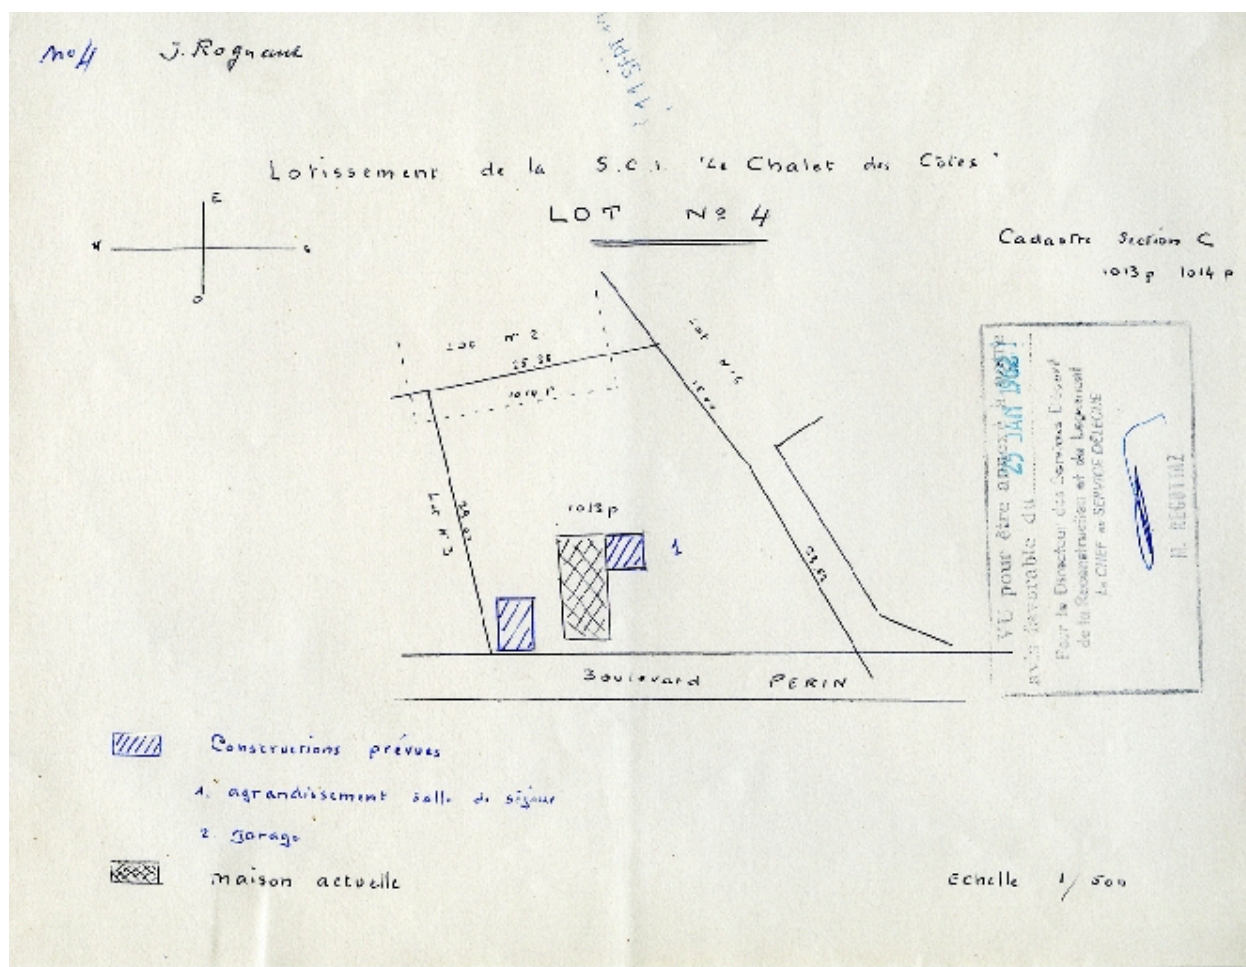 no 4 J. Rognant
11 SEPT
Lotissement de la S.C.I. "Le Chalet des Côtes"
LOT No 4
E
N S
O
Cadastre Section C
1013 p 1014 p
Lot n° 2
25.35
1014 p
Lot n° 5
Lot n° 3
1013 p
1
23,52
Boulevard PERIN
VU pour être annexé à
avis favorable du 25 JAN 1962
Pour le Directeur des Services
de la Reconstruction et du Logement
Le CHEF de SERVICE DÉLÉGUÉ
Constructions prévues
1. agrandissement salle de séjour
2. garage
maison actuelle
Echelle 1/500